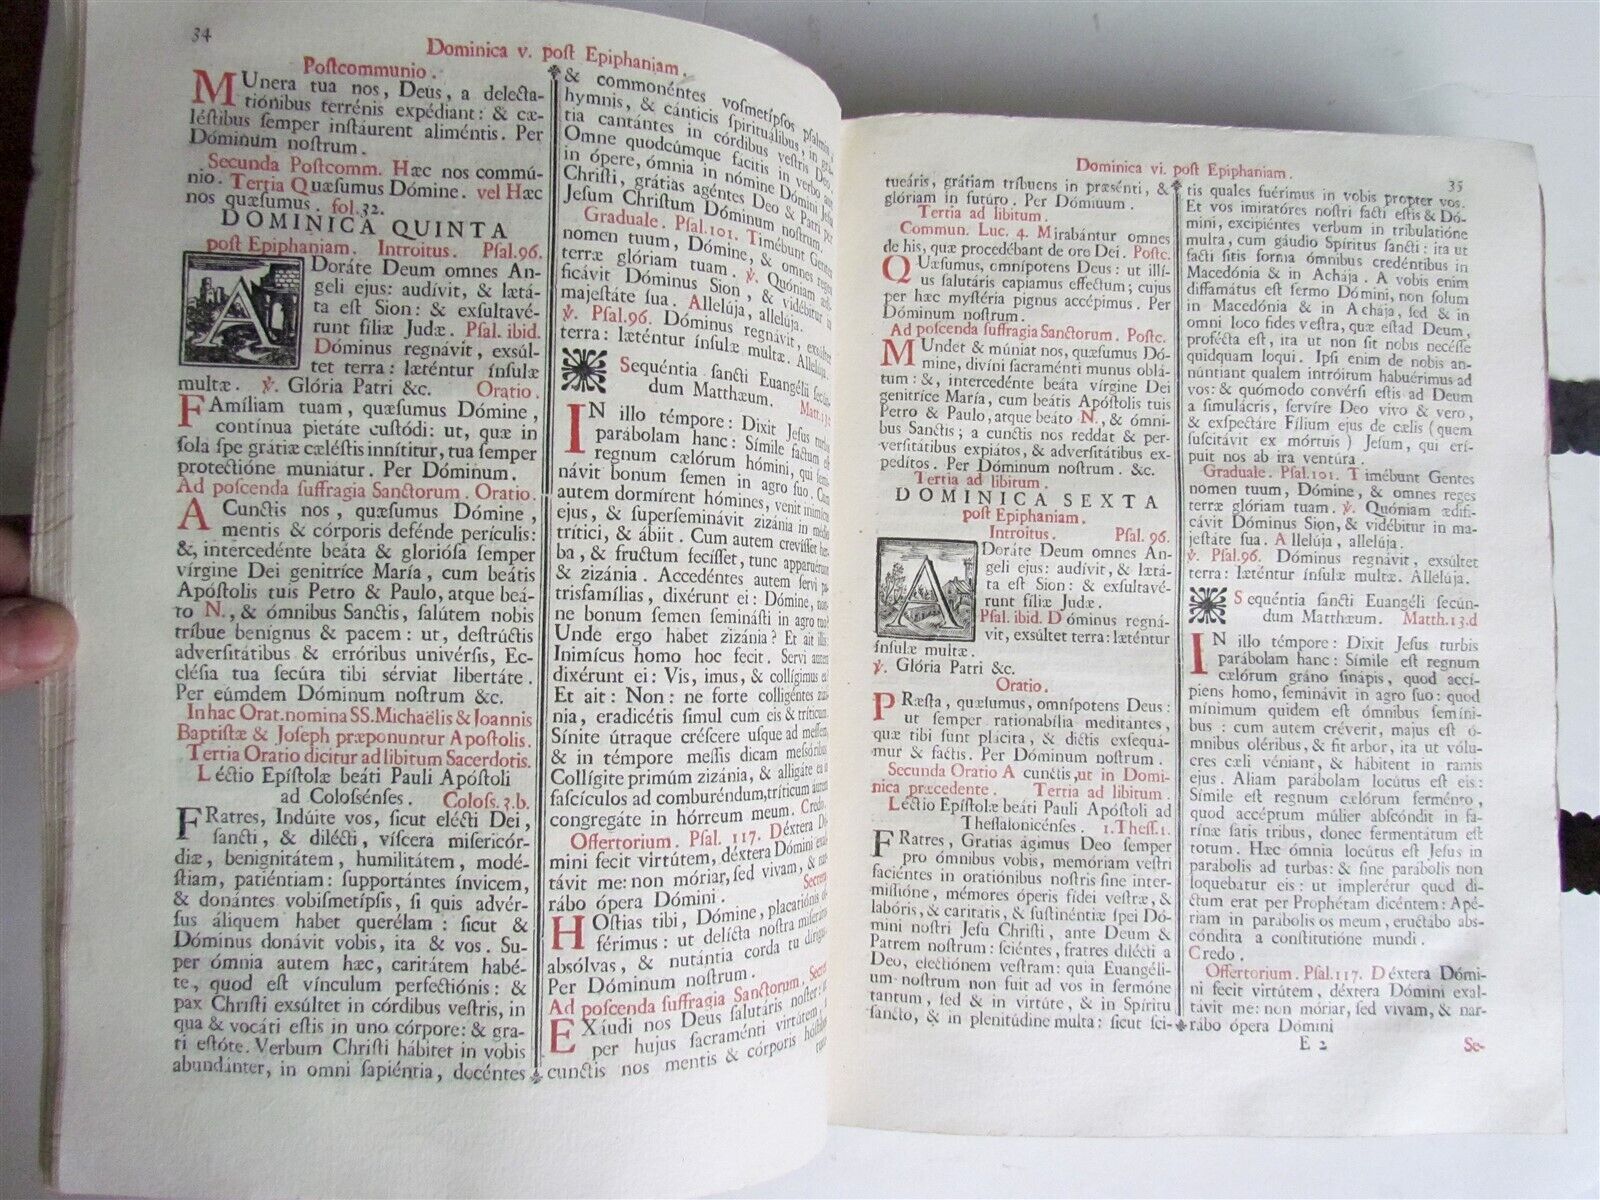 34
Dominica v. poſt Epiphaniam.
Poſtcommunio.
MUnera tua nos, Deus, a delecta-
tiónibus terrénis expédiant: & cæ-
léſtibus ſemper inſtáurent aliméntis. Per
Dóminum noſtrum.
Secunda Poſtcomm. Hæc nos commú-
nio. Tertia Quæſumus Dómine. vel Hæc
nos quæſumus. fol.32.
DOMINICA QUINTA
poſt Epiphaniam. Introitus. Pſal.96.
ADoráte Deum omnes An-
geli ejus: audívit, & lætá-
ta eſt Sion: & exſultavé-
runt filiæ Judæ. Pſal. ibid.
Dóminus regnávit, exsúl-
tet terra: læténtur ínſulæ
multæ. ℣. Glória Patri &c. Oratio.
FAmíliam tuam, quæſumus Dómine,
contínua pietáte cuſtódi: ut, quæ in
ſola ſpe grátiæ cæléſtis innítitur, tua ſemper
protectióne muniátur. Per Dóminum.
Ad poſcenda ſuffragia Sanctorum. Oratio.
A Cunctis nos, quæſumus Dómine,
mentis & córporis defénde perículis:
&, intercedénte beáta & glorióſa ſemper
vírgine Dei genitríce María, cum beátis
Apóſtolis tuis Petro & Paulo, atque beá-
to N., & ómnibus Sanctis, ſalútem nobis
tríbue benígnus & pacem: ut, deſtrúctis
adverſitátibus & erróribus univérſis, Ec-
cléſia tua ſecúra tibi sérviat libertáte.
Per eúmdem Dóminum noſtrum &c.
In hac Orat. nomina SS. Michaëlis & Joannis
Baptiſtæ & Joſeph præponuntur Apoſtolis.
Tertia Oratio dicitur ad libitum Sacerdotis.
Léctio Epíſtolæ beáti Pauli Apóſtoli
ad Coloſsénſes. Coloſs.3.b.
FRatres, Indúite vos, ſicut elécti Dei,
ſancti, & dilécti, víſcera miſericór-
diæ, benignitátem, humilitátem, modé-
ſtiam, patiéntiam: ſupportántes ínvicem,
& donántes vobiſmetípſis, ſi quis advér-
ſus áliquem habet querélam: ſicut &
Dóminus donávit vobis, ita & vos. Su-
per ómnia autem hæc, caritátem habé-
te, quod eſt vínculum perfectiónis: &
pax Chriſti exsúltet in córdibus veſtris, in
qua & vocáti eſtis in uno córpore: & gra-
ti eſtóte. Verbum Chriſti hábitet in vobis
abundánter, in omni ſapiéntia, docéntes
& commonéntes voſmetípſos pſalmis,
hymnis, & cánticis ſpirituálibus, in grá-
tia cantántes in córdibus veſtris Deo.
Omne quodcúmque fácitis in verbo aut
in ópere, ómnia in nómine Dómini Jeſu
Chriſti, grátias agéntes Deo & Patri per
Jeſum Chriſtum Dóminum noſtrum.
Graduale. Pſal.101. Timébunt Gentes
nomen tuum, Dómine, & omnes reges
terræ glóriam tuam. ℣. Quóniam ædi-
ficávit Dóminus Sion, & vidébitur in
majeſtáte ſua. Allelúja, allelúja.
℣. Pſal.96. Dóminus regnávit, exsúltet
terra: læténtur ínſulæ multæ. Allelúja.
Sequéntia ſancti Euangélii ſecún-
dum Matthæum. Matt.13.
IN illo témpore: Dixit Jeſus turbis
parábolam hanc: Símile factum eſt
regnum cælórum hómini, qui ſemi-
návit bonum ſemen in agro ſuo. Cum
autem dormírent hómines, venit inimícus
ejus, & ſuperſeminávit zizánia in médio
trítici, & ábiit. Cum autem creviſſet her-
ba, & fructum feciſſet, tunc apparuérunt
& zizánia. Accedéntes autem ſervi pa-
trisfamílias, dixérunt ei: Dómine, non-
ne bonum ſemen ſemináſti in agro tuo?
Unde ergo habet zizánia? Et ait illis:
Inimícus homo hoc fecit. Servi autem
dixérunt ei: Vis, imus, & collígimus ea?
Et ait: Non: ne forte colligéntes zizá-
nia, eradicétis ſimul cum eis & tríticum.
Sínite útraque créſcere uſque ad meſſem,
& in témpore meſſis dicam meſsóribus:
Collígite primúm zizánia, & alligáte ea in
faſcículos ad comburéndum, tríticum autem
congregáte in hórreum meum. Credo.
Offertorium. Pſal. 117. Déxtera Dó-
mini fecit virtútem, déxtera Dómini exal-
távit me: non móriar, ſed vivam, & nar-
rábo ópera Dómini. Secreta
HOſtias tibi, Dómine, placatiónis of-
férimus: ut delícta noſtra miſerátus
absólvas, & nutántia corda tu dírigas.
Per Dóminum noſtrum.
Ad poſcenda ſuffragia Sanctorum. Secret.
EXáudi nos Deus ſalutáris noſter: ut
per hujus ſacraménti virtútem, a
cunctis nos mentis & córporis hóſtibus
tuæ
Dominica vi. poſt Epiphaniam.
35
tueáris, grátiam tríbuens in præsénti, &
glóriam in futúro. Per Dóminum.
Tertia ad libitum.
Commun. Luc. 4. Mirabántur omnes
de his, quæ procedébant de ore Dei. Poſtc.
QUæſumus, omnípotens Deus: ut illí-
us ſalutáris capiamus efféctum; cujus
per hæc myſtéria pignus accépimus. Per
Dóminum noſtrum.
Ad poſcenda ſuffragia Sanctorum. Poſtc.
MUndet & múniat nos, quæſumus Dó-
mine, divíni ſacraménti munus oblá-
tum: &, intercedénte beáta vírgine Dei
genitríce María, cum beátis Apóſtolis tuis
Petro & Paulo, atque beáto N., & ómni-
bus Sanctis; a cunctis nos reddat & per-
verſitátibus expiátos, & adverſitátibus ex-
pedítos. Per Dóminum noſtrum. &c.
Tertia ad libitum.
DOMINICA SEXTA
poſt Epiphaniam.
Introitus. Pſal. 96.
ADoráte Deum omnes An-
geli ejus: audívit, & lætá-
ta eſt Sion: & exſultavé-
runt filiæ Judæ.
Pſal. ibid. Dóminus regná-
vit, exsúltet terra: læténtur
ínſulæ multæ.
℣. Glória Patri &c.
Oratio.
PRæſta, quæſumus, omnípotens Deus:
ut ſemper rationabília meditántes,
quæ tibi ſunt plácita, & dictis exſequá-
mur & factis. Per Dóminum noſtrum.
Secunda Oratio A cunctis, ut in Domi-
nica præcedente. Tertia ad libitum.
Léctio Epíſtolæ beáti Pauli Apóſtoli ad
Theſſalonicénſes. 1.Theſſ.1.
FRatres, Grátias ágimus Deo ſemper
pro ómnibus vobis, memóriam veſtri
faciéntes in oratiónibus noſtris ſine inter-
miſſióne, mémores óperis fídei veſtræ, &
labóris, & caritátis, & ſuſtinéntiæ ſpei Dó-
mini noſtri Jeſu Chriſti, ante Deum &
Patrem noſtrum: ſciéntes, fratres dilécti a
Deo, electiónem veſtram: quia Euangéli-
um noſtrum non fuit ad vos in ſermóne
tantum, ſed & in virtúte, & in Spíritu
ſancto, & in plenitúdine multa: ſicut ſci-
tis quales fuérimus in vobis propter vos.
Et vos imitatóres noſtri facti eſtis & Dó-
mini, excipiéntes verbum in tribulatióne
multa, cum gáudio Spíritus ſancti: ita ut
facti ſitis forma ómnibus credéntibus in
Macedónia & in Achája. A vobis enim
diffamátus eſt ſermo Dómini, non ſolum
in Macedónia & in Achája, ſed & in
omni loco fides veſtra, quæ eſt ad Deum,
profécta eſt, ita ut non ſit nobis necéſſe
quidquam loqui. Ipſi enim de nobis an-
núntiant qualem intróitum habuérimus ad
vos: & quómodo convérſi eſtis ad Deum
a ſimulácris, ſervíre Deo vivo & vero,
& exſpectáre Fílium ejus de cælis (quem
ſuſcitávit ex mórtuis) Jeſum, qui erí-
puit nos ab ira ventúra.
Graduale. Pſal.101. Timébunt Gentes
nomen tuum, Dómine, & omnes reges
terræ glóriam tuam. ℣. Quóniam ædifi-
cávit Dóminus Sion, & vidébitur in ma-
jeſtáte ſua. Allelúja, allelúja.
℣. Pſal.96. Dóminus regnávit, exsúltet
terra: læténtur ínſulæ multæ. Allelúja.
Sequéntia ſancti Euangéli ſecún-
dum Matthæum. Matth.13.d
IN illo témpore: Dixit Jeſus turbis
parábolam hanc: Símile eſt regnum
cælórum gráno ſinápis, quod accí-
piens homo, ſeminávit in agro ſuo: quod
mínimum quidem eſt ómnibus ſemíni-
bus: cum autem créverit, majus eſt ó-
mnibus oléribus, & fit arbor, ita ut vólu-
cres cæli véniant, & hábitent in ramis
ejus. Aliam parábolam locútus eſt eis:
Símile eſt regnum cælórum ferménto,
quod accéptum múlier abſcóndit in fa-
rínæ ſatis tribus, donec fermentátum eſt
totum. Hæc ómnia locútus eſt Jeſus in
parábolis ad turbas: & ſine parábolis non
loquebátur eis: ut implerétur quod di-
ctum erat per Prophétam dicéntem: Apé-
riam in parábolis os meum, eructábo abs-
cóndita a conſtitutióne mundi.
Credo.
Offertorium. Pſal.117. Déxtera Dómi-
ni fecit virtútem, déxtera Dómini exal-
távit me: non móriar, ſed vivam, & nar-
rábo ópera Dómini
E 2
Se-